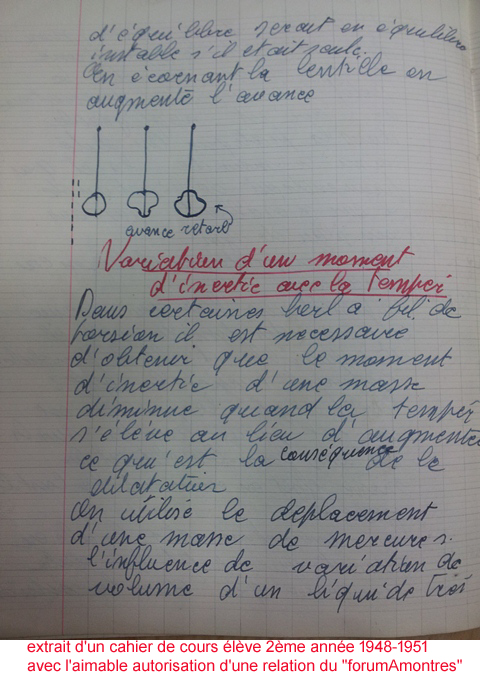 d'équilibre serait en équilibre
instable s'il était seul.
En écornant la lentille on
augmente l'avance
avance retard
Variation d'un moment
d'inertie avec la temper
Dans certaines horl a fil de
torsion il est necessaire
d'obtenir que le moment
d'inertie d'une masse
diminue quand la temper
s'élève au lieu d'augmente
ce qu'est la conséquence de la
dilatation
On utilise le deplacement
d'une masse de mercure s.
l'influence de variation de
volume d'un liquide très
extrait d'un cahier de cours élève 2ème année 1948-1951
avec l'aimable autorisation d'une relation du "forumAmontres"